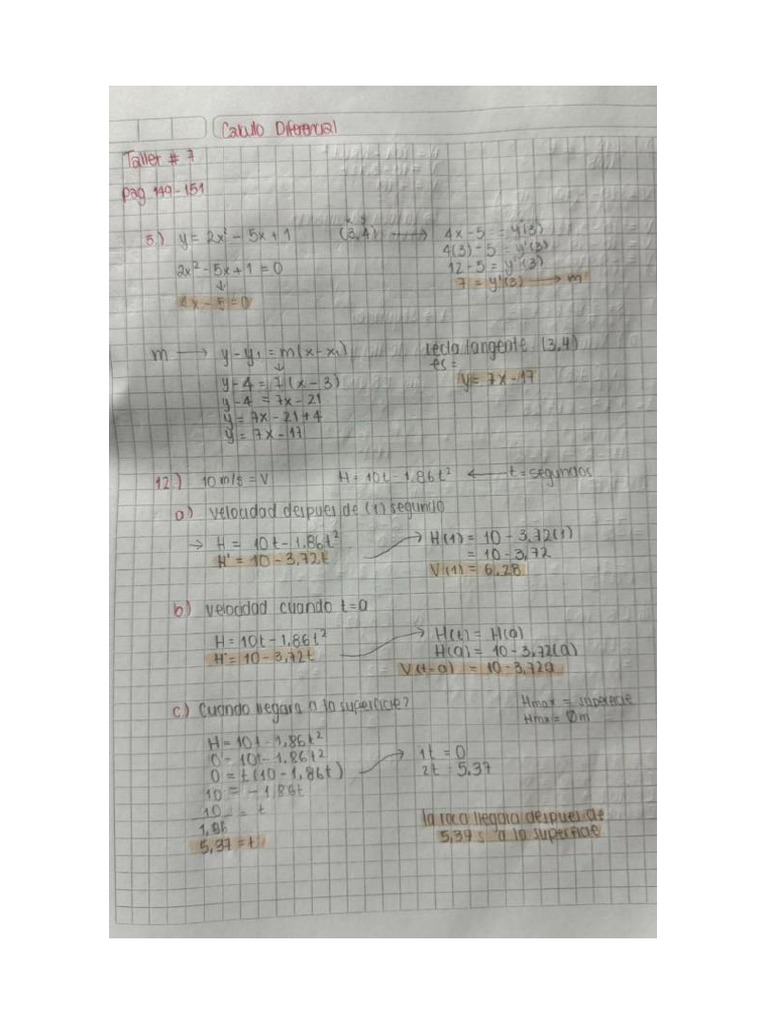 Calculo Diferencial
Taller # 7
pag 149-151
5.) y = 2x² - 5x + 1
x y
(3,4) → 4x - 5 = y'(3)
4(3) - 5 = y'(3)
12 - 5 = y'(3)
7 = y'(3) → m
2x² - 5x + 1 = 0
↓
4x - 5 = 0
m → y - y₁ = m(x - x₁)
↓
y - 4 = 7(x - 3)
y - 4 = 7x - 21
y = 7x - 21 + 4
y = 7x - 17
recta tangente (3,4)
es =
y = 7x - 17
12.) 10 m/s = V H = 10t - 1.86t² ← t = segundos
a) velocidad despues de (1) segundo
→ H = 10t - 1.86t²
H' = 10 - 3,72t
→ H(1) = 10 - 3,72(1)
= 10 - 3,72
V(1) = 6.28
b) velocidad cuando t=a
H = 10t - 1.86t²
H' = 10 - 3,72t
→ H(t) = H(a)
H(a) = 10 - 3,72(a)
V(t-a) = 10 - 3,72a
c) Cuando llegara a la superficie?
Hmax = superficie
Hmax = 0m
H = 10t - 1,86t²
0 = 10t - 1.86t²
0 = t(10 - 1,86t)
10 = - 1,86t
10 = t
1,86
5,37 = t
→ 1t = 0
2t = 5.37
la roca llegara despues de
5,39 s a la superficie